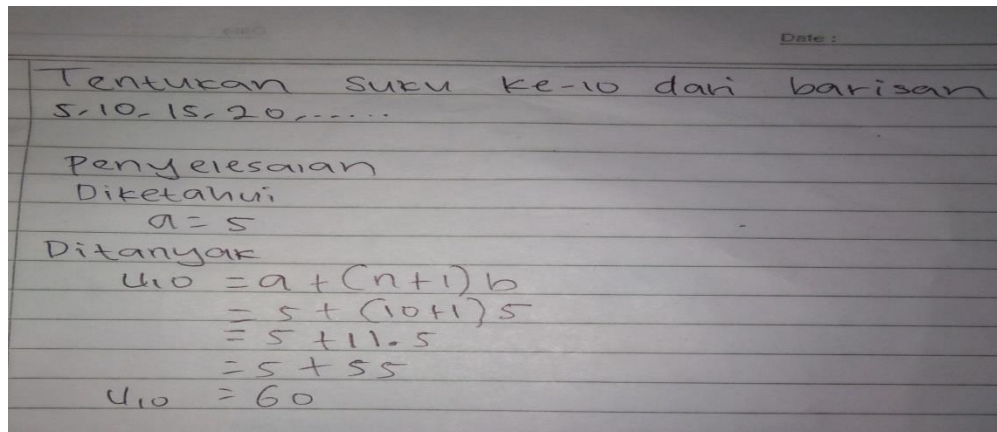 Date :
Tentukan suku ke-10 dari barisan
5, 10, 15, 20, ......
Penyelesaian
Diketahui
a = 5
Ditanyak
U10 = a + (n+1) b
= 5 + (10+1) 5
= 5 + 11. 5
= 5 + 55
U10 = 60